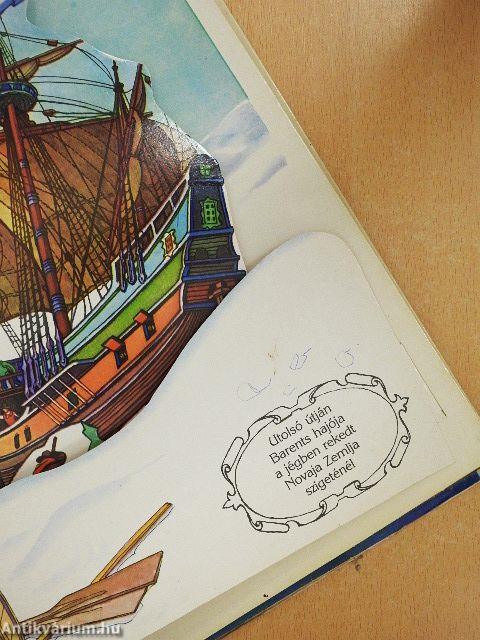 Utolsó útján
Barents hajója
a jégben rekedt
Novaja Zemlja
szigeténél
Antikvárium.hu